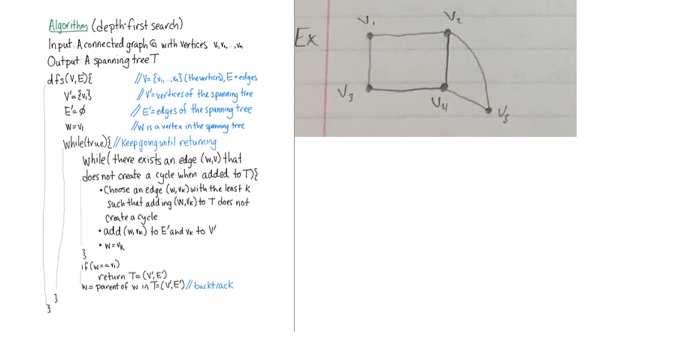 Algorithm (depth-first search)
Input: A connected graph G with vertices v₁, v₂, ..., vₙ
Output: A spanning tree T
dfs(V,E){ //V={v₁, ..., vₙ} (the vertices), E=edges
V'={v₁} //V'=vertices of the spanning tree
E'=∅ //E'=edges of the spanning tree
w=v₁ //w is a vertex in the spanning tree
while(true){ //Keep going until returning
while(there exists an edge (w,v) that
does not create a cycle when added to T){
• Choose an edge (w,vₖ) with the least k
such that adding (w,vₖ) to T does not
create a cycle
• add (w,vₖ) to E' and vₖ to V'
• w=vₖ
}
if(w==v₁)
return T=(V',E')
w= parent of w in T=(V',E') //backtrack
}
}
Ex
V₁ V₂
V₃ V₄ V₅